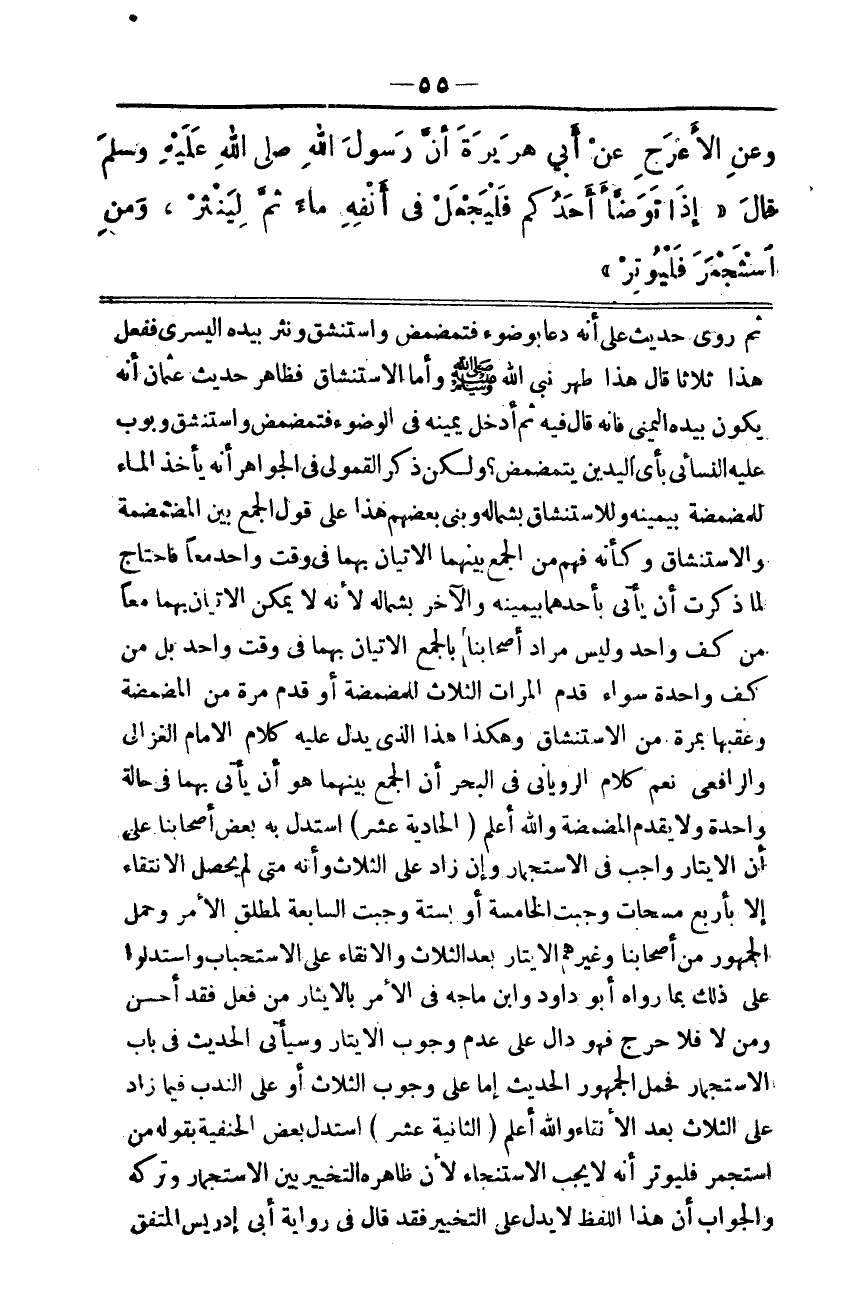 — ٥٥ —
وعنِ الأَعْرَجِ عنْ أَبي هريرَةَ أنَّ رَسولَ اللهِ صلى اللهُ عَلَيْهِ وسلمَ
قالَ « إِذَا تَوَضَّأَ أَحَدُكم فَلْيَجْعَلْ فى أَنْفِهِ ماءً ثمَّ لِيَنْثرْ ، وَمنِ
اَسْتَجْمَرَ فَلْيُوتِرْ »
ثم روى حديث على أنه دعا بوضوء فتمضمض واستنشق ونثر بيده اليسرى ففعل
هذا ثلاثا قال هذا طهر نبى الله ﷺ وأما الاستنشاق فظاهر حديث عثمان أنه
يكون بيده اليمنى فانه قال فيه ثم أدخل يمينه فى الوضوء فتمضمض واستنشق وبوب
عليه النسائى بأى اليدين يتمضمض؟ ولكن ذكر القمولى فى الجواهر أنه يأخذ الماء
للمضمضة بيمينه وللاستنشاق بشماله وبنى بعضهم هذا على قول الجمع بين المضمضة
والاستنشاق وكأنه فهم من الجمع بينهما الاتيان بهما فى وقت واحد معاً فاحتاج
لما ذكرت أن يأتى بأحدهما بيمينه والآخر بشماله لأنه لا يمكن الاتيان بهما معاً
من كف واحد وليس مراد أصحابنا بالجمع الاتيان بهما فى وقت واحد بل من
كف واحدة سواء قدم المرات الثلاث للمضمضة أو قدم مرة من المضمضة
وعقبها بمرة من الاستنشاق وهكذا هذا الذى يدل عليه كلام الامام الغزالى
والرافعى نعم كلام الرويانى فى البحر أن الجمع بينهما هو أن يأتى بهما فى حالة
واحدة ولا يقدم المضمضة والله أعلم ( الحادية عشر ) استدل به بعض أصحابنا على
أن الايتار واجب فى الاستجمار وإن زاد على الثلاث وأنه متى لم يحصل الانتقاء
إلا بأربع مسحات وجبت الخامسة أو بستة وجبت السابعة لمطلق الأمر وحمل
الجمهور من أصحابنا وغيرهم الايتار بعد الثلاث والانقاء على الاستحباب واستدلوا
على ذلك بما رواه أبو داود وابن ماجه فى الأمر بالايثار من فعل فقد أحسن
ومن لا فلا حرج فهو دال على عدم وجوب الايتار وسيأتى الحديث فى باب
الاستجمار فحمل الجمهور الحديث إما على وجوب الثلاث أو على الندب فيما زاد
على الثلاث بعد الأنتاء والله أعلم ( الثانية عشر ) استدل بعض الحنفية بقوله من
استجمر فليوتر أنه لا يجب الاستنجاء لأن ظاهره التخيير بين الاستجمار وتركه
والجواب أن هذا اللفظ لا يدل على التخيير فقد قال فى رواية أبى إدريس المتفق